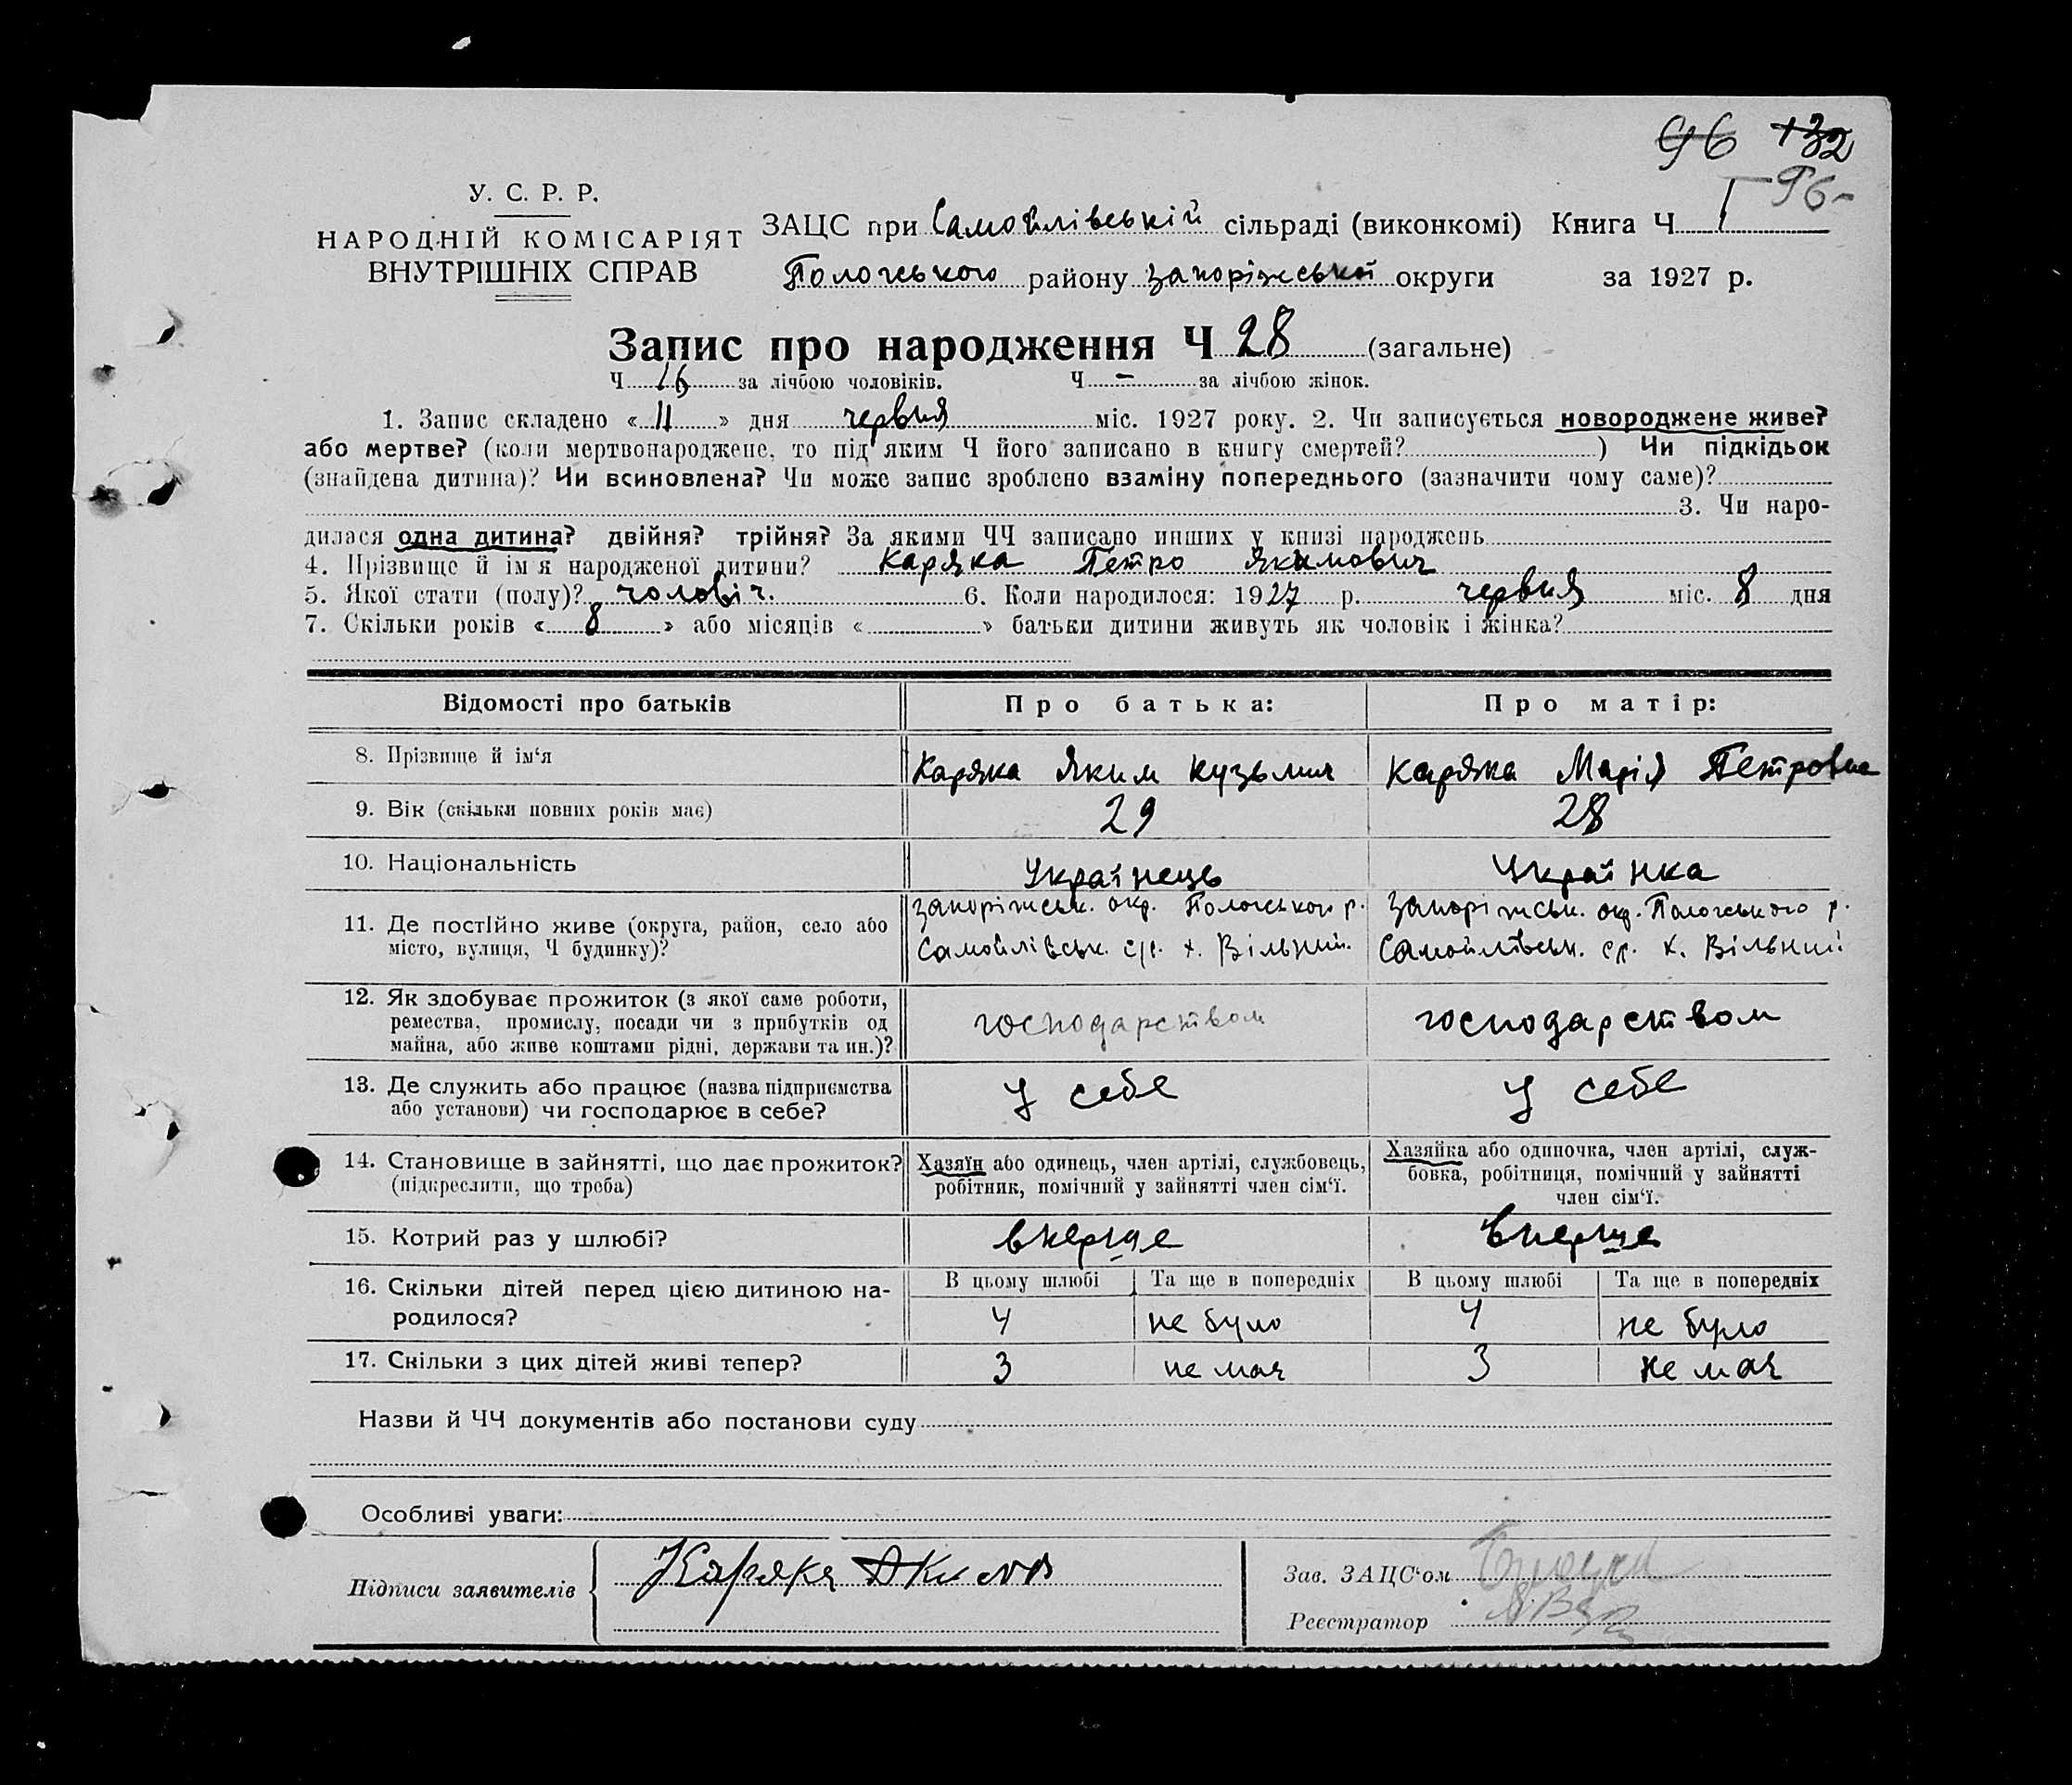 96 132
96-
У. С. Р. Р.
НАРОДНІЙ КОМІСАРІЯТ
ВНУТРІШНІХ СПРАВ
ЗАЦС при Самойлівській сільраді (виконкомі) Книга Ч 1
Пологського району Запоріжської округи за 1927 р.
Запис про народження Ч 28 (загальне)
Ч 16 за лічбою чоловіків. Ч - за лічбою жінок.
1. Запис складено «11» дня червня міс. 1927 року. 2. Чи записується новороджене живе?
або мертве? (коли мертвонароджене, то під яким Ч його записано в книгу смертей? ) Чи підкідьок
(знайдена дитина)? Чи всиновлена? Чи може запис зроблено взаміну попереднього (зазначити чому саме)?
3. Чи наро-
дилася одна дитина? двійня? трійня? За якими ЧЧ записано инших у книзі народжень
4. Прізвище й ім'я народженої дитини? Каряка Петро Якимович
5. Якої стати (полу)? чоловіч. 6. Коли народилося: 1927 р. червня міс. 8 дня
7. Скільки років «8» або місяців « » батьки дитини живуть як чоловік і жінка?
Відомості про батьків Про батька: Про матір:
8. Прізвище й ім'я Каряка Яким Кузьмич Каряка Марія Петровна
9. Вік (скільки повних років має) 29 28
10. Національність Українець Українка
11. Де постійно живе (округа, район, село або Запоріжськ. окр. Пологського р. Запоріжськ. окр. Пологського р.
місто, вулиця, Ч будинку)? Самойлівськ. с/р. х. Вільний. Самойлівськ. ср. х. Вільний
12. Як здобуває прожиток (з якої саме роботи,
ремества, промислу, посади чи з прибутків од господарством господарством
майна, або живе коштами рідні, держави та ин.)?
13. Де служить або працює (назва підприємства У себе У себе
або установи) чи господарює в себе?
14. Становище в зайнятті, що дає прожиток? Хазяїн або одинець, член артілі, службовець, Хазяйка або одиночка, член артілі, служ-
(підкреслити, що треба) робітник, помічний у зайнятті член сім'ї. бовка, робітниця, помічний у зайнятті
член сім'ї.
15. Котрий раз у шлюбі? вперше вперше
16. Скільки дітей перед цією дитиною на- В цьому шлюбі Та ще в попередніх В цьому шлюбі Та ще в попередніх
родилося? 4 не було 4 не було
17. Скільки з цих дітей живі тепер? 3 не має 3 не має
Назви й ЧЧ документів або постанови суду
Особливі уваги:
Підписи заявителів Каряка Аким
Зав. ЗАЦС'ом
Реєстратор